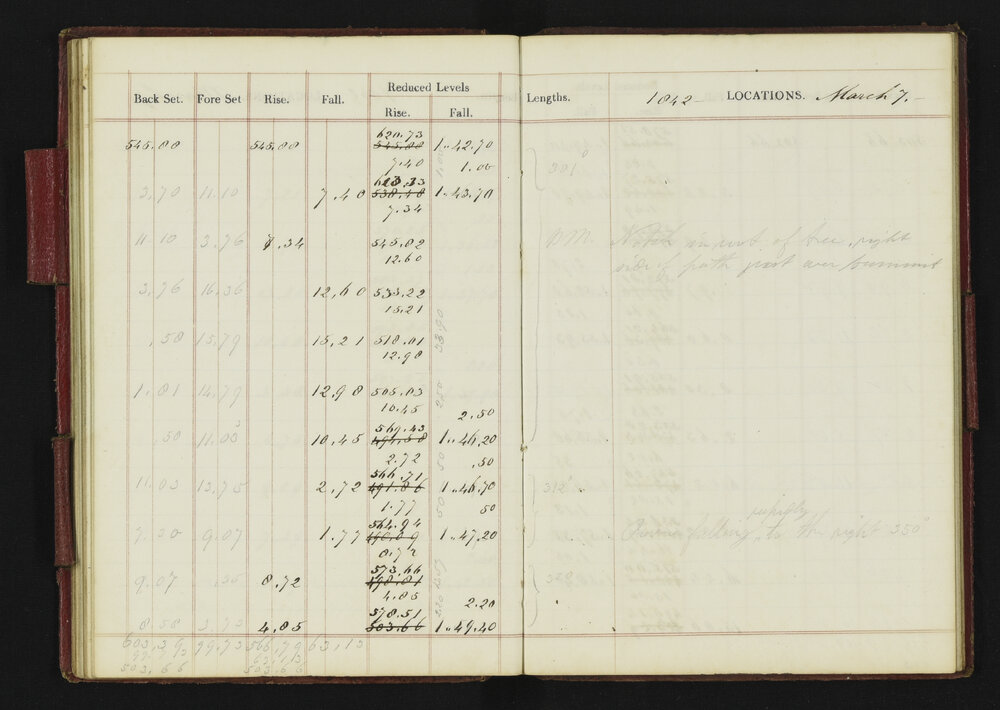 Reduced Levels
Back Set. Fore Set Rise. Fall. Rise. Fall. Lengths. 1842 LOCATIONS. March 7.
620.73
545.88 545.88 545.88 1..42.70
7.40 1.00 301°
613.33
3.70 11.10 7.40 538.48 1..43.70
7.34
11.10 3.76 7.34 545.82 B.M. Notch in root of tree, right
12.60 side of path just over summit
3.76 16.36 12.60 533.22
15.21
.58 15.79 15.21 518.01
12.98
1.81 14.79 12.98 505.03
10.45 2.50
569.43
.58 11.03 10.45 494.58 1..46.20
2.72 .50
566.71
11.03 13.75 2.72 491.86 1..46.70 312°
1.77 50 rapidly
564.94
7.30 9.07 1.77 490.09 1..47.20 falling to the right 350°
8.72
573.66
9.07 .35 8.72 498.81
4.85 2.20
578.51
8.58 3.73 4.85 503.66 1..49.40
99.73 566.79 63.13
503.66 503.66